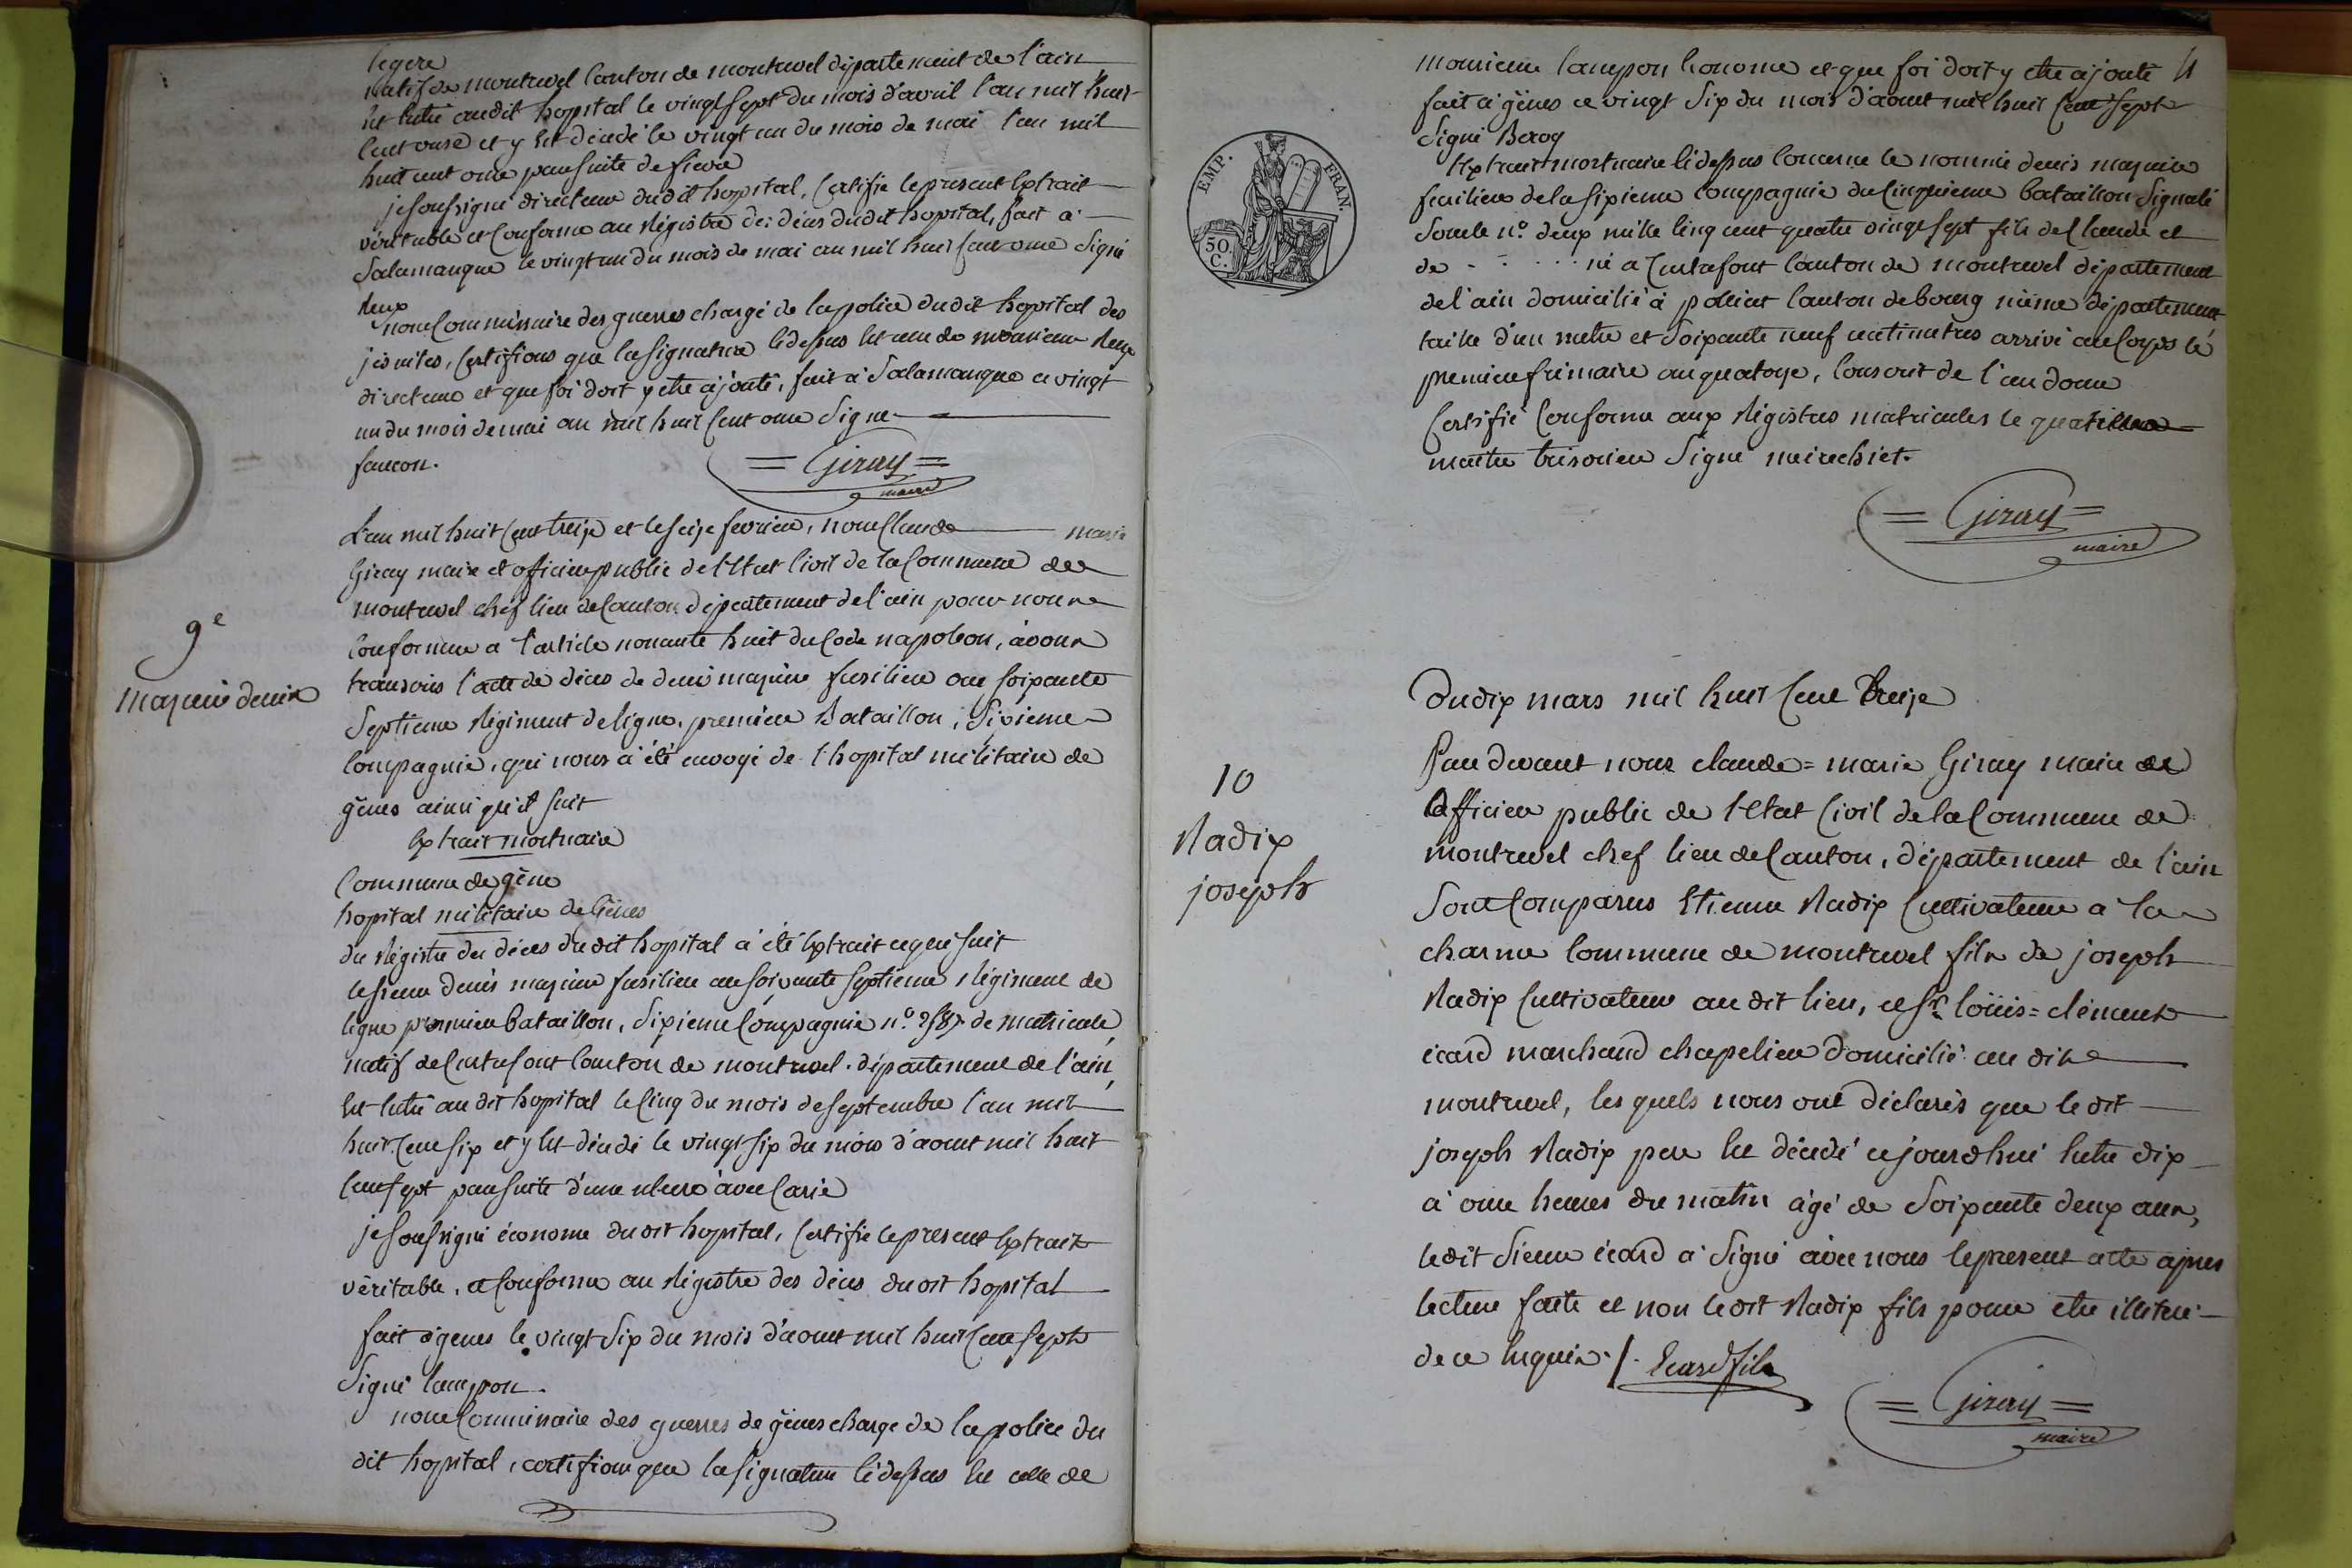 legere
natif de montrevel Canton de montrevel département de l'ain
est Entré audit hopital le vingt sept du mois d'avril l'an mil huit
Cent onze et y Est décédé le vingt un du mois de mai l'an mil
huit cent onze par suite de fievre
je soussigné directeur dudit hopital, Certifie le present Extrait
véritable et Conforme au Régistre des décés dudit hopital, fait à
Salamanque le vingt un du mois de mai an mil huit Cent onze Signé
nous Commissaire des guerres chargé de la police dudit hopital des
jésuites, Certifions que la signature Cidessus Est celle de monsieur
directeur et que foi doit y etre ajouté, fait à Salamanque ce vingt
un du mois de mai an mil huit Cent onze Signé
faucon.
= Giray =
maire
L'an mil huit Cent treize et le seize fevrier, nous Claude marie
Giray maire et officier public de l'Etat Civil de la Commune de
montrevel chef lieu de Canton département de l'ain pour nous
Conformer a l'article nonante huit du Code napoleon, avons
transcris l'acte de décés de denis mazuir fusilier au soixante
Septieme Régiment de ligne, premier Bataillon, sixieme
Compagnie, qui nous à été envoyé de l'hopital militaire de
gênes ainsi qu'il suit
9e
mazuir denis
Extrait mortuaire
Commune de gêne
hopital militaire de Gênes
du Régistre des décés dudit hopital à été Extrait ce qui suit
le sieur denis mazuir fusilier au soixante septieme Régiment de
ligne premier bataillon, sixieme Compagnie n.° 2587 de matricule
natif de Curtafont Canton de montrevel département de l'ain,
Est Entré au dit hopital le Cinq du mois de septembre l'an mil
huit Cent six et y Est décédé le vingt six du mois d'aout mil huit
Cent sept par suite d'une ulcere avec Carie
je soussigné économe dudit hopital, Certifie le present Extrait
véritable, et Conforme au Régistre des décés dudit hopital
fait à genes le vingt six du mois d'aout mil huit Cent sept
Signé Campon.
nous Commissaire des guerres de gênes charge de la police du
dit hopital, certifions que la signature Cidessus Est celle de
monsieur Campon Econome et que foi doit y etre ajouté
fait à gênes ce vingt six du mois d'aout mil huit Cent sept
Signé
Extrait mortuaire Cidessus Concerne le nommé denis mazuir
fusilier de la sixieme Compagnie du Cinquieme bataillon Signalé
Sous le n.° deux mille Cinq cent quatre vingt sept fils de Claude et
de . . . . né a Curtafont Canton de montrevel département
de l'ain domicilié à polliat Canton de bourg même département,
taille d'un metre et soixante neuf centimetres arrivé au Corps le
premier frimaire an quatorze, Conscrit de l'an douze
Certifié Conforme aux Régistres matricules le quartier
maitre trésorier Signé
= Giray =
maire
EMP. FRAN.
50 C.
Du dix mars mil huit Cent treize
10
Nadix
joseph
Par devant nous claude = marie Giray maire et
officier public de l'Etat Civil de la Commune de
montrevel chef lieu de Canton, département de l'ain
Sont Comparus Etienne Nadix Cultivateur a la
charme Commune de montrevel fils de joseph
Nadix Cultivateur au dit lieu, et Sr. loüis = clément
écard marchand chapelier domicilié au dit
montrevel, les quels nous ont déclarés que le dit
joseph Nadix pere Est décédé ce jourdhui dix
à onze heures du matin âgé de Soixante deux ans,
le dit Sieur écard à Signé avec nous le present acte apres
lecture faite et non le dit Nadix fils pour etre illitéré
de ce Enquis ./. Ecard fils
= Giray =
maire